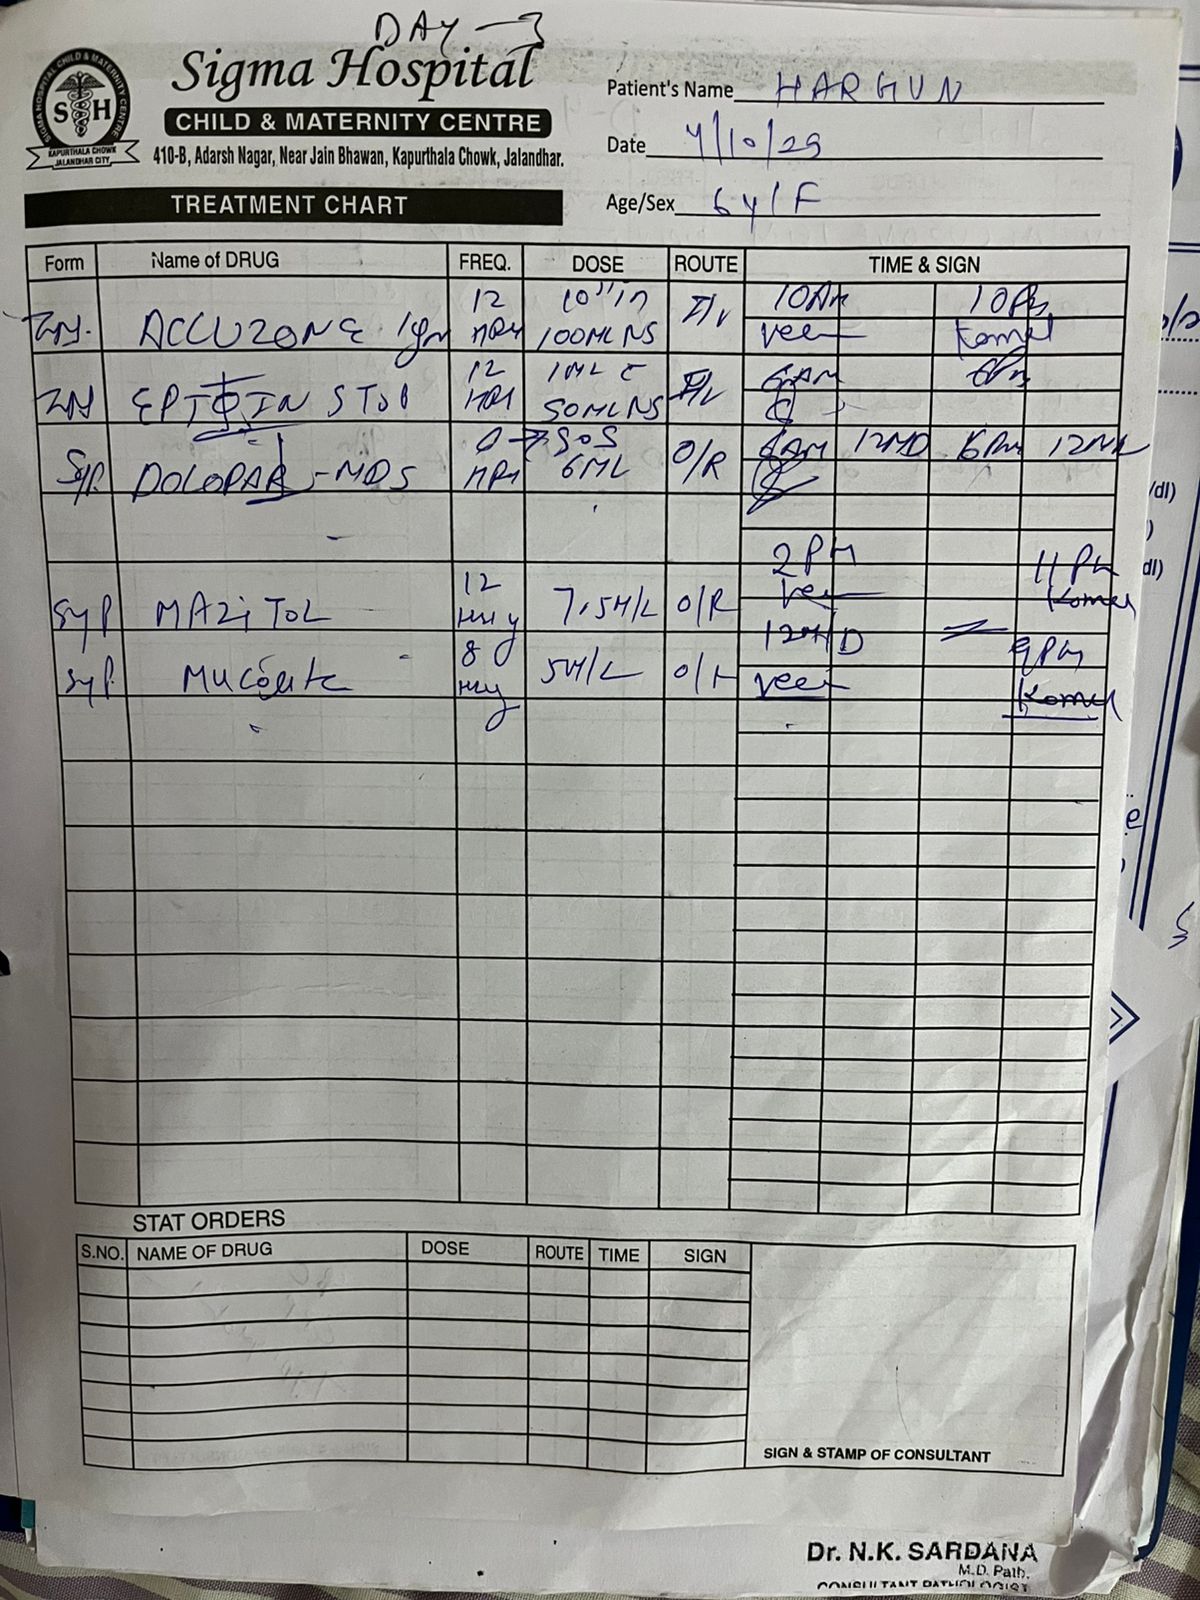 DAY → 3
Sigma Hospital
CHILD & MATERNITY CENTRE
410-B, Adarsh Nagar, Near Jain Bhawan, Kapurthala Chowk, Jalandhar.
SIGMA HOSPITAL CHILD & MATERNITY CENTRE
S H
KAPURTHALA CHOWK
JALANDHAR CITY.
Patient's Name HARGUN
Date /10/25
Age/Sex 6y/F
TREATMENT CHART
Form Name of DRUG FREQ. DOSE ROUTE TIME & SIGN
Inj. ACCUZONE 1gm 12 HRLY 10 in 100ML NS I/V 10AM 10PM
Veer Komal
Inj EPTOIN 12 HRLY 1ML c 50ML NS I/V 6AM 6PM
Syp. DOLOPAR-MDS HRLY → SOS 6ML O/R 6AM 12MD 6PM 12MN
Syp MAZiTOL 12 Hrly 7.5M/L O/R 2PM 11PM
Veer Komal
Syp. 8 Hrly 5M/L O/R 12M/D 9PM
Veer Komal
STAT ORDERS
S.NO. NAME OF DRUG DOSE ROUTE TIME SIGN
SIGN & STAMP OF CONSULTANT
Dr. N.K. SARDANA
M.D. Path.
CONSULTANT PATHOLOGIST
/dl)
)
dl)
e